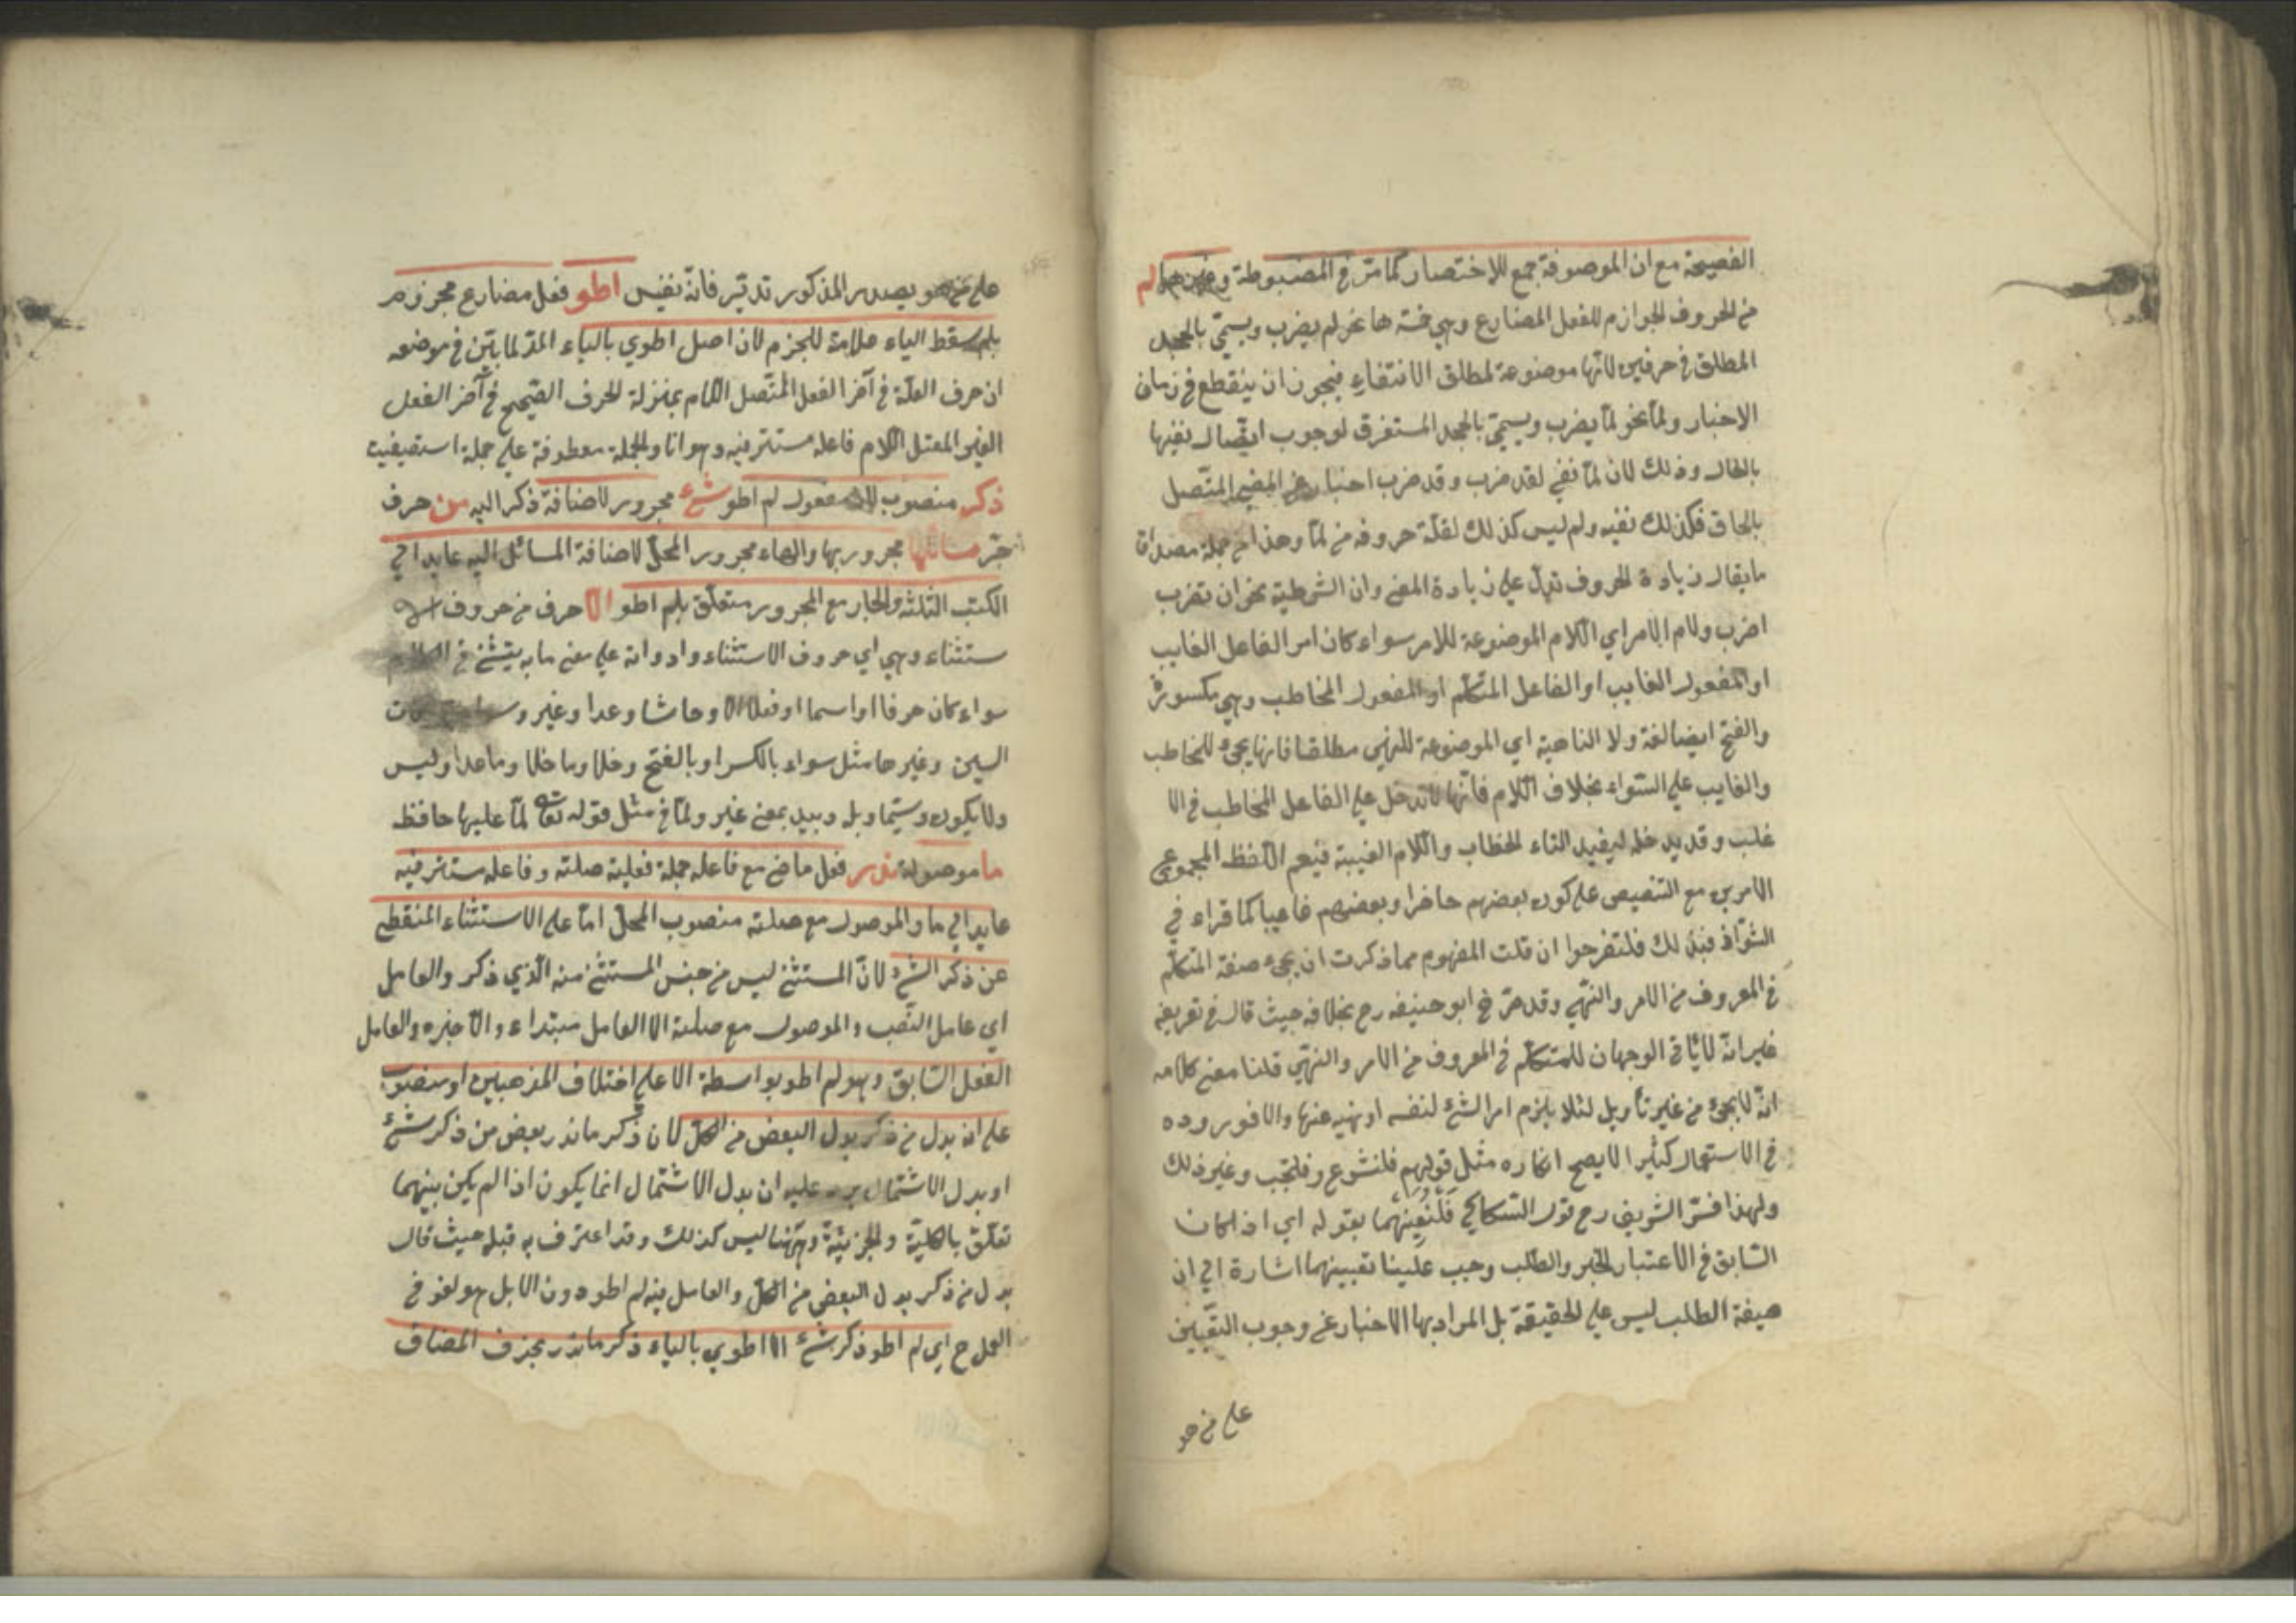 الفصيحة مع ان الموصوفة جمع للاختصار كما مرّ في المضبوطة وغيرها لم
من الحروف الجوازم للفعل المضارع وهي خمسة ها نحو لم يضرب ويسمّي بالجحد
المطلق في حرفين لانّها موضوعة لمطلق الانتفاء فيجوز ان ينقطع في زمان
الاخبار ولمّا نحو لمّا يضرب ويسمّي بالجحد المستغرق لوجوب اتّصال نفيها
بالحال وذلك لان لمّا نفي لقد ضرب وقد ضرب اخبار عن المضي المتّصل
بالحال فكذلك نفيه ولم ليس كذلك لقلّة حروفه من لمّا وهذا من جملة مصداق
ما يقال زيادة الحروف تدلّ علي زيادة المعني وان الشرطية نحو ان تضرب
اضرب ولام الامر اي اللام الموضوعة للامر سواء كان امر الفاعل الغايب
او المفعول الغايب او الفاعل المتكلّم او المفعول المخاطب وهي مكسورة
والفتح ايضا لغة ولا الناهية اي الموضوعة للنهي مطلقا فانها يجيء للمخاطب
والغايب علي السّواء بخلاف اللام فانّها لا تدخل علي الفاعل المخاطب في الا
غلب وقد يدخله ليفيد التاء الخطاب واللام الغيبة فيعم اللفظ المجموع
الامرين مع التنصيص علي كون بعضهم حاضرا وبعضهم غايبا كما قراء في
الشّواذ فبذلك فلتفرحوا ان قلت المفهوم مما ذكرت ان يجيء صيغة المتكلّم
في المعروف من الامر والنّهي وقد صرّح ابو حنيفه رح بخلافه حيث قال في تعريفه
غير انّه لا يأتي الوجهان للمتكلّم في المعروف من الامر والنهي قلنا معني كلامه
انّه لا يجيء من غير تأويل لئلا يلزم امر الشئ لنفسه او نهيه عنها والا فوروده
في الاستعمال كثير لا يصح انكاره مثل قولهم فلنشرع وفلنجب وغير ذلك
ولهذا فسّر الشريف رح قول السّكاكي فَلْنُعِيِّنهُما بقوله اي اذا كان
السّابق في الاعتبار الخبر والطّلب وجب علينا تعيينهما اشارة الي ان
صيغة الطلب ليس علي الحقيقة بل المراد بها الاخبار عن وجوب التعيين
علي من هو
علي من هو بصدر المذكور تدبّر فانّه نفيس اطو فعل مضارع مجزوم
بلم سقط الياء علامة للجزم لان اصل اطوي بالياء المدّ لما بيّن في موضعه
ان حرف العلّة في آخر الفعل المتّصل اللام بمنزلة الحرف الصّحيح في آخر الفعل
الغير المعتل اللام فاعله مستتر فيه وهو انا والجملة معطوفة علي جملة استصفيت
ذكر منصوب لانه مفعول لم اطو شئ مجرور لاضافة ذكر اليه من حرف
جرّ مسائلها مجرور بها والهاء مجرور المحلّ لاضافة المسائل اليه عايد الي
الكتب الثلثة والجار مع المجرور متعلّق بلم اطو الّا حرف من حروف الا
ستثناء وهي اي حروف الاستثناء وادواته علي معني ما به يستثني في الكلام
سواء كان حرفا او اسما او فعلا الا وحاشا وعدا وغير وسواء
السين وغيرها مثل سواء بالكسر او بالفتح وخلا وما خلا وما عدا وليس
ولا يكون وسيّما وبله وبيد بمعني غير ولمّا في مثل قوله تعالي لمّا عليها حافظ
ما موصولة ندر فعل ماض مع فاعله جملة فعلية صلته وفاعله مستتر فيه
عايد الي ما والموصول مع صلته منصوب المحلّ امّا علي الاستثناء المنقطع
عن ذكر الشئ لانّ المستثني ليس من جنس المستثني منه الّذي ذكر والعامل
اي عامل النّصب والموصول مع صلته الا العامل مبتداء والّا خبره والعامل
الفعل السّابق وهو لم اطو بواسطة الا علي اختلاف المذهبين او منصوب
علي انه بدل من ذكر بدل البعض من الكلّ لان ذكر ما ندر بعض من ذكر شئ
او بدل الاشتمال يرد عليه ان بدل الاشتمال انما يكون اذا لم يكن بينهما
تعلّق بالكلّية والجزئيّة وههنا ليس كذلك وقد اعترف به قبله حيث قال
بدل من ذكر بدل البعض من الكلّ والعامل فيه لم اطو دون الا بل هو لغو في
العمل ح اي لم اطو ذكر شئ الا اطوي بالياء ذكر ما ندر بحذف المضاف